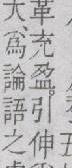 革充盈引伸
大爲論語之